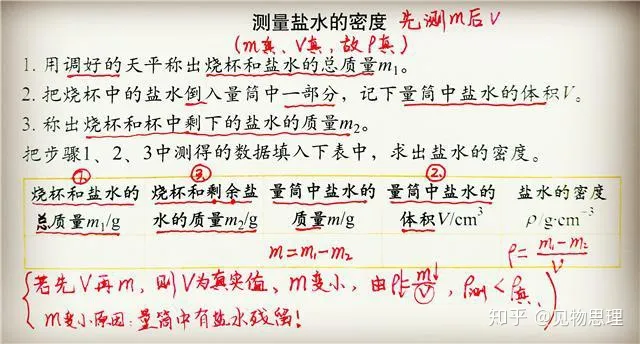 测量盐水的密度 先测m后V
(m真、V真,故ρ真)
1. 用调好的天平称出烧杯和盐水的总质量m₁。
2. 把烧杯中的盐水倒入量筒中一部分,记下量筒中盐水的体积V。
3. 称出烧杯和杯中剩下的盐水的质量m₂。
把步骤1、2、3中测得的数据填入下表中,求出盐水的密度。
① ③ ②
烧杯和盐水的 烧杯和剩余盐 量筒中盐水的 量筒中盐水的 盐水的密度
总质量m₁/g 水的质量m₂/g 质量m/g 体积V/cm³ ρ/g·cm⁻³
m=m₁-m₂ ρ=(m₁-m₂)/V
若先V再m,则V为真实值、m变小,由ρ↓=m↓/V,ρ测<ρ真
m变小原因:量筒中有盐水残留!
知乎 @见物思理